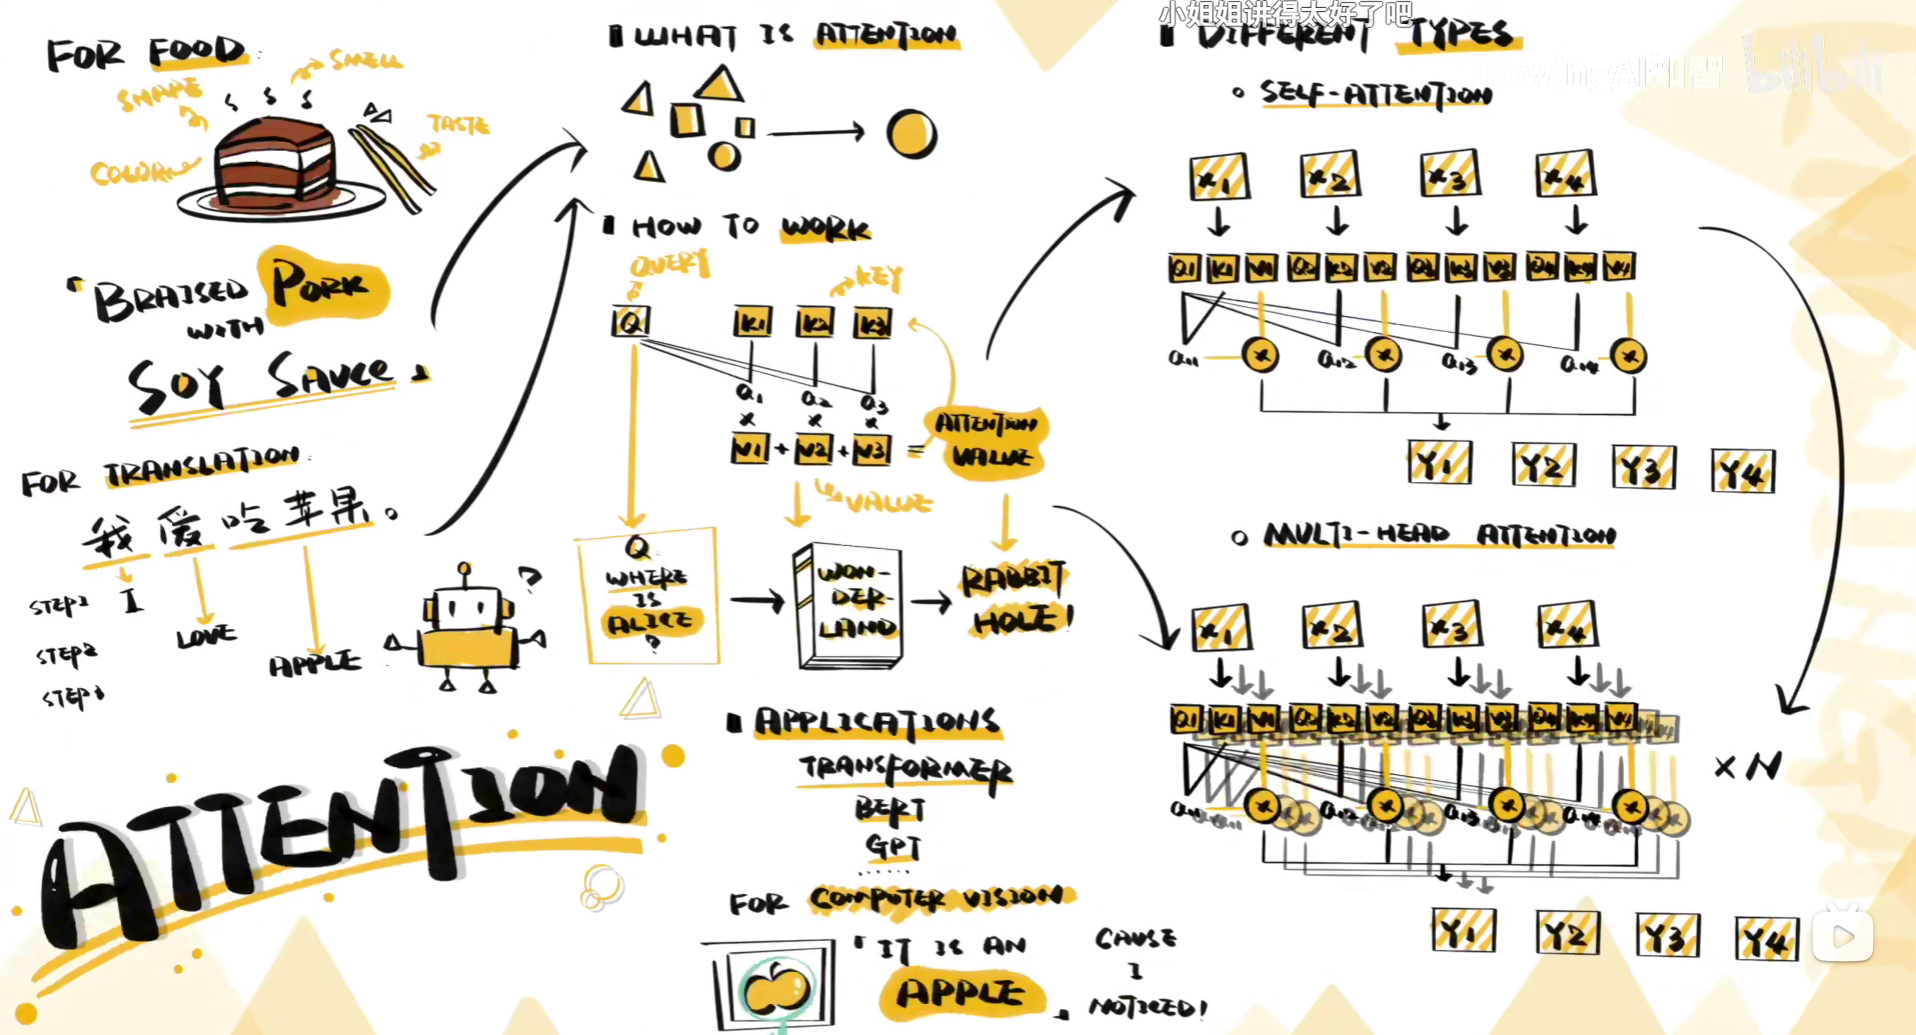 FOR FOOD
SMELL
SHAPE
TASTE
COLOR
「BRAISED PORK
WITH
SOY SAUCE」
FOR TRANSLATION:
我爱吃苹果。
STEP1 I
LOVE
STEP2
APPLE
STEP3
?
ATTENTION
WHAT IS ATTENTION
HOW TO WORK
QUERY
KEY
Q K1 K2 K3
a1 a2 a3
× × ×
V1 + V2 + V3 =
ATTENTION
VALUE
VALUE
Q
WHERE
IS
ALICE
?
WON-
DER-
LAND
RABBIT
HOLE!
APPLICATIONS
TRANSFORMER
BERT
GPT
......
FOR COMPUTER VISION
「IT IS AN
APPLE」
CAUSE
I
NOTICED!
小姐姐讲得太好了吧
DIFFERENT TYPES
bilibili
SELF-ATTENTION
x1 x2 x3 x4
Q1 K1 V1 Q2 K2 V2 Q3 K3 V3 Q4 K4 V4
a11 × a12 × a13 × a14 ×
Y1 Y2 Y3 Y4
MULTI-HEAD ATTENTION
x1 x2 x3 x4
Q1 K1 V1 Q2 K2 V2 Q3 K3 V3 Q4 K4 V4
×N
a11 × a12 × a13 × a14 ×
Y1 Y2 Y3 Y4